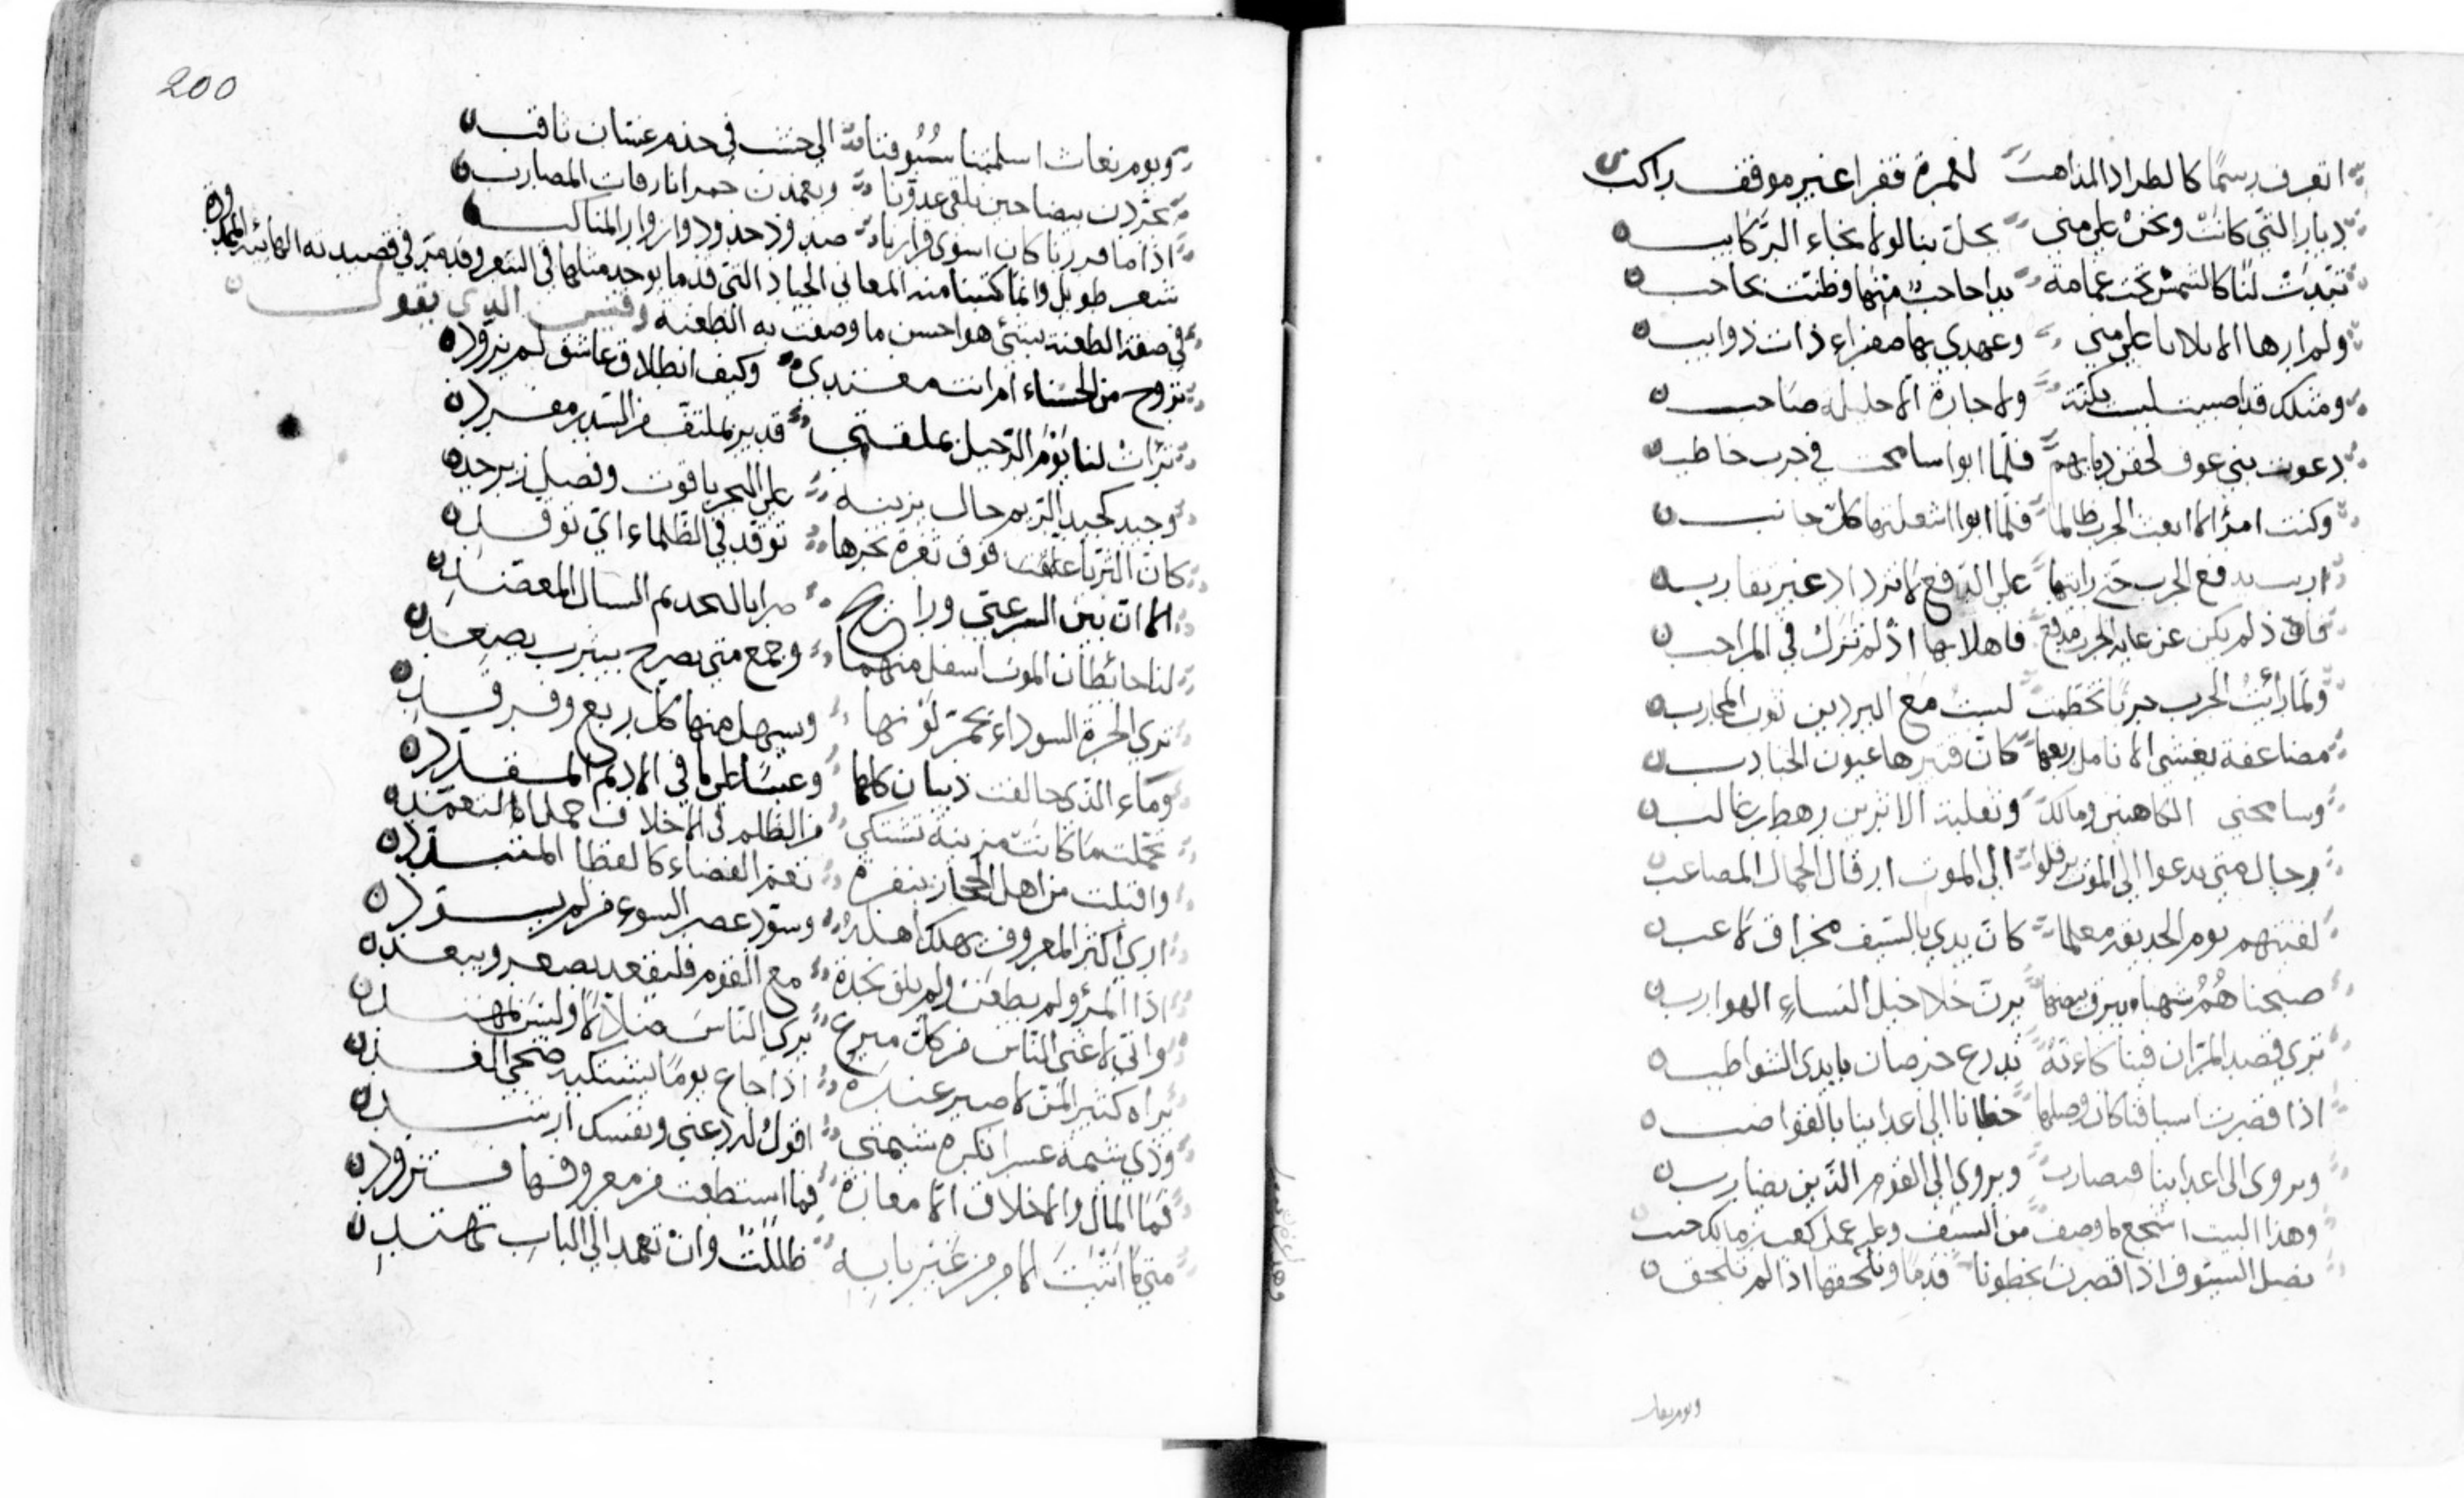 اتعرف رسمًا كالطراد المذاهب لعمرة قفرا غير موقف راكب
ديار التي كانت ونحن على منى تحل بنا لولا نجاء الركايب
تبدت لنا كالشمس تحت غمامة بدا حاجب منها وظنت بحاجب
ولم ارها الا ثلاثا على منى وعهدي بها صفراء ذات ذوايب
ومثلك قد اصبيت ليست بكنة ولا جارة الا حليلة صاحب
دعوت بني عوف لحقن دمايهم فلما ابوا سامحت في حرب حاطب
وكنت امرًا لا ابعث الحرب ظالما فلما ابوا اشعلتها كل جانب
اربت بدفع الحرب حتى رايتها على الدفع لا تزداد غير تقارب
فاذ لم يكن عن غاية الحرب مدفع فاهلا بها اذ لم تزل في المراحب
ولما رأيت الحرب حربًا تحطمت لبست مع البردين ثوب المحارب
مضاعفة يغشى الانامل ريعها كان قتيرها عيون الجنادب
وسامحني الكاهنين ومالك وثعلبة الاثرين رهط بن غالب
رجال متى يدعوا الى الموت يرقلوا الى الموت ارقال الجمال المصاعب
لقيتهم يوم الحديقة معلما كان يدي بالسيف مخراق لاعب
صبحناهم شهباء يبرق بيضها تبرت خلاخيل النساء الهوارب
ترى قصد المران فينا كانه تدرع خرصان بايدي الشواطب
اذا قصرت اسيافنا كان وصلها خطانا الى اعداينا بالقواضب
ويروى الى اعداينا فنضارب ويروى الى القوم الذين يضارب
وهذا البيت اشجع ما وصف من السيف وعليه عمل كعب بن مالك حيث
نصل السيوف اذا قصرن بخطونا قدمًا ونلحقها اذا لم تلحق
ويوم بعاث
200
ويوم بعاث اسلمتنا سيوفنا الى حسب في جذم غسان ثاقب
يجردن بيضا حين نلقى عدونا ويغمدن حمرا ناردات المضارب
اذا ما فررنا كان اسوى فرارنا صدود خدود وازورار المناكب
شعر طويل وانما كتبنا منه المعاني الجياد التي قدما يوجد مثلها في الشعر وقد مر في قصيدته الهائية الممدودة
في صفة الطعنة بشيء هو احسن ما وصفت به الطعنة وقيس الذي يقول
تروح من الحسناء ام انت مغتدي وكيف انطلاق عاشق لم يزود
تراءت لنا يوم الرحيل بمقلتي قدير بملتف من السدر مفرد
وجيد كجيد الريم حال يزينه على النحر ياقوت وفصل زبرجد
كان الثريا علقت فوق ثغرة نحرها توقد في الظلماء اي توقد
الا ان بين السرعبي وراتج ضرابا لتخديم السيال المعضد
لنا حائطان الموت اسفل منهما وجمع متى يصرخ بيثرب يصعد
ترى الحرة السوداء يحمر لونها ويسهل منها كل ريع وفرقد
وماء الذي حالفت ذبيان كلها وعبسا على ما في الاديم الممدد
تحملت ما كانت مزينة تشتكي من الظلم في الاخلاف حمل التغمد
واقبلت من اهل الحجاز بنفرة تغم الفضاء كالقطا المتبدد
ارى اكثر المعروف يهلك اهله وسود عصر السوء من لم يسود
اذا المرؤ لم يطعن ولم يلق نجدة مع القوم فليقعد بصغر ويبعد
واني لاغنى الناس من كل مبرع يرى الناس ضلالا وليس بمهتد
تراه كثير المن لا صبر عنده اذا جاع يومًا يشتكيه ضحى الغد
وذي شيمة عسرا تكره شيمتي اقول له دعني ونفسك ارشد
فما المال والاخلاق الا معارة فما اسطعت من معروفها فتزود
متى ما اتيت الامر من غير بابه ظللت وان تعمد الى الباب تهتد